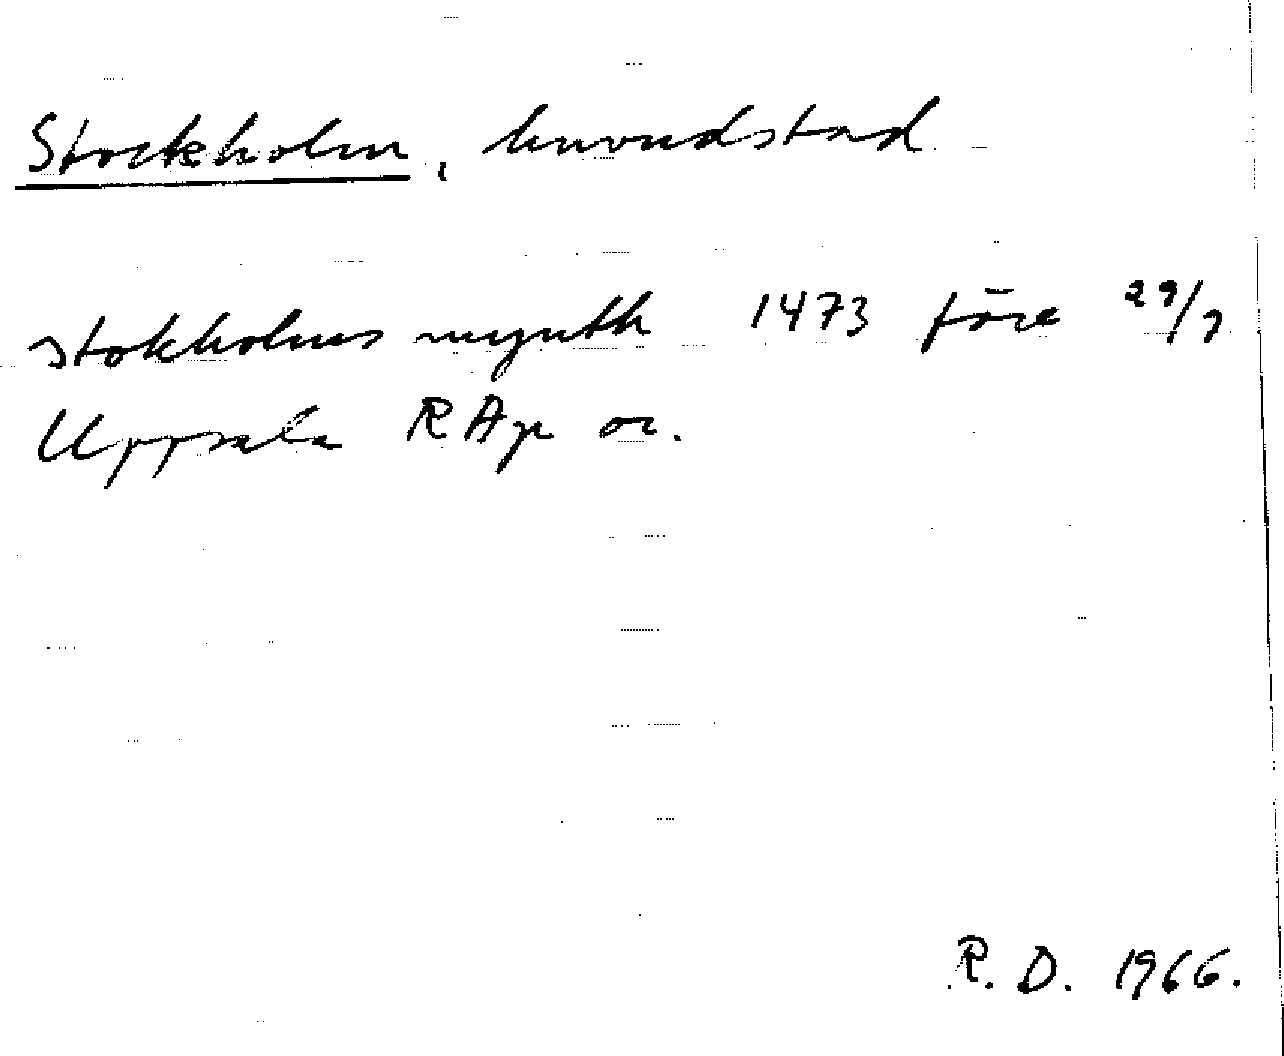 Stockholm, huvudstad
stokholms mynth 1473 före 29/7
Uppsala RAp or.
R. D. 1966.